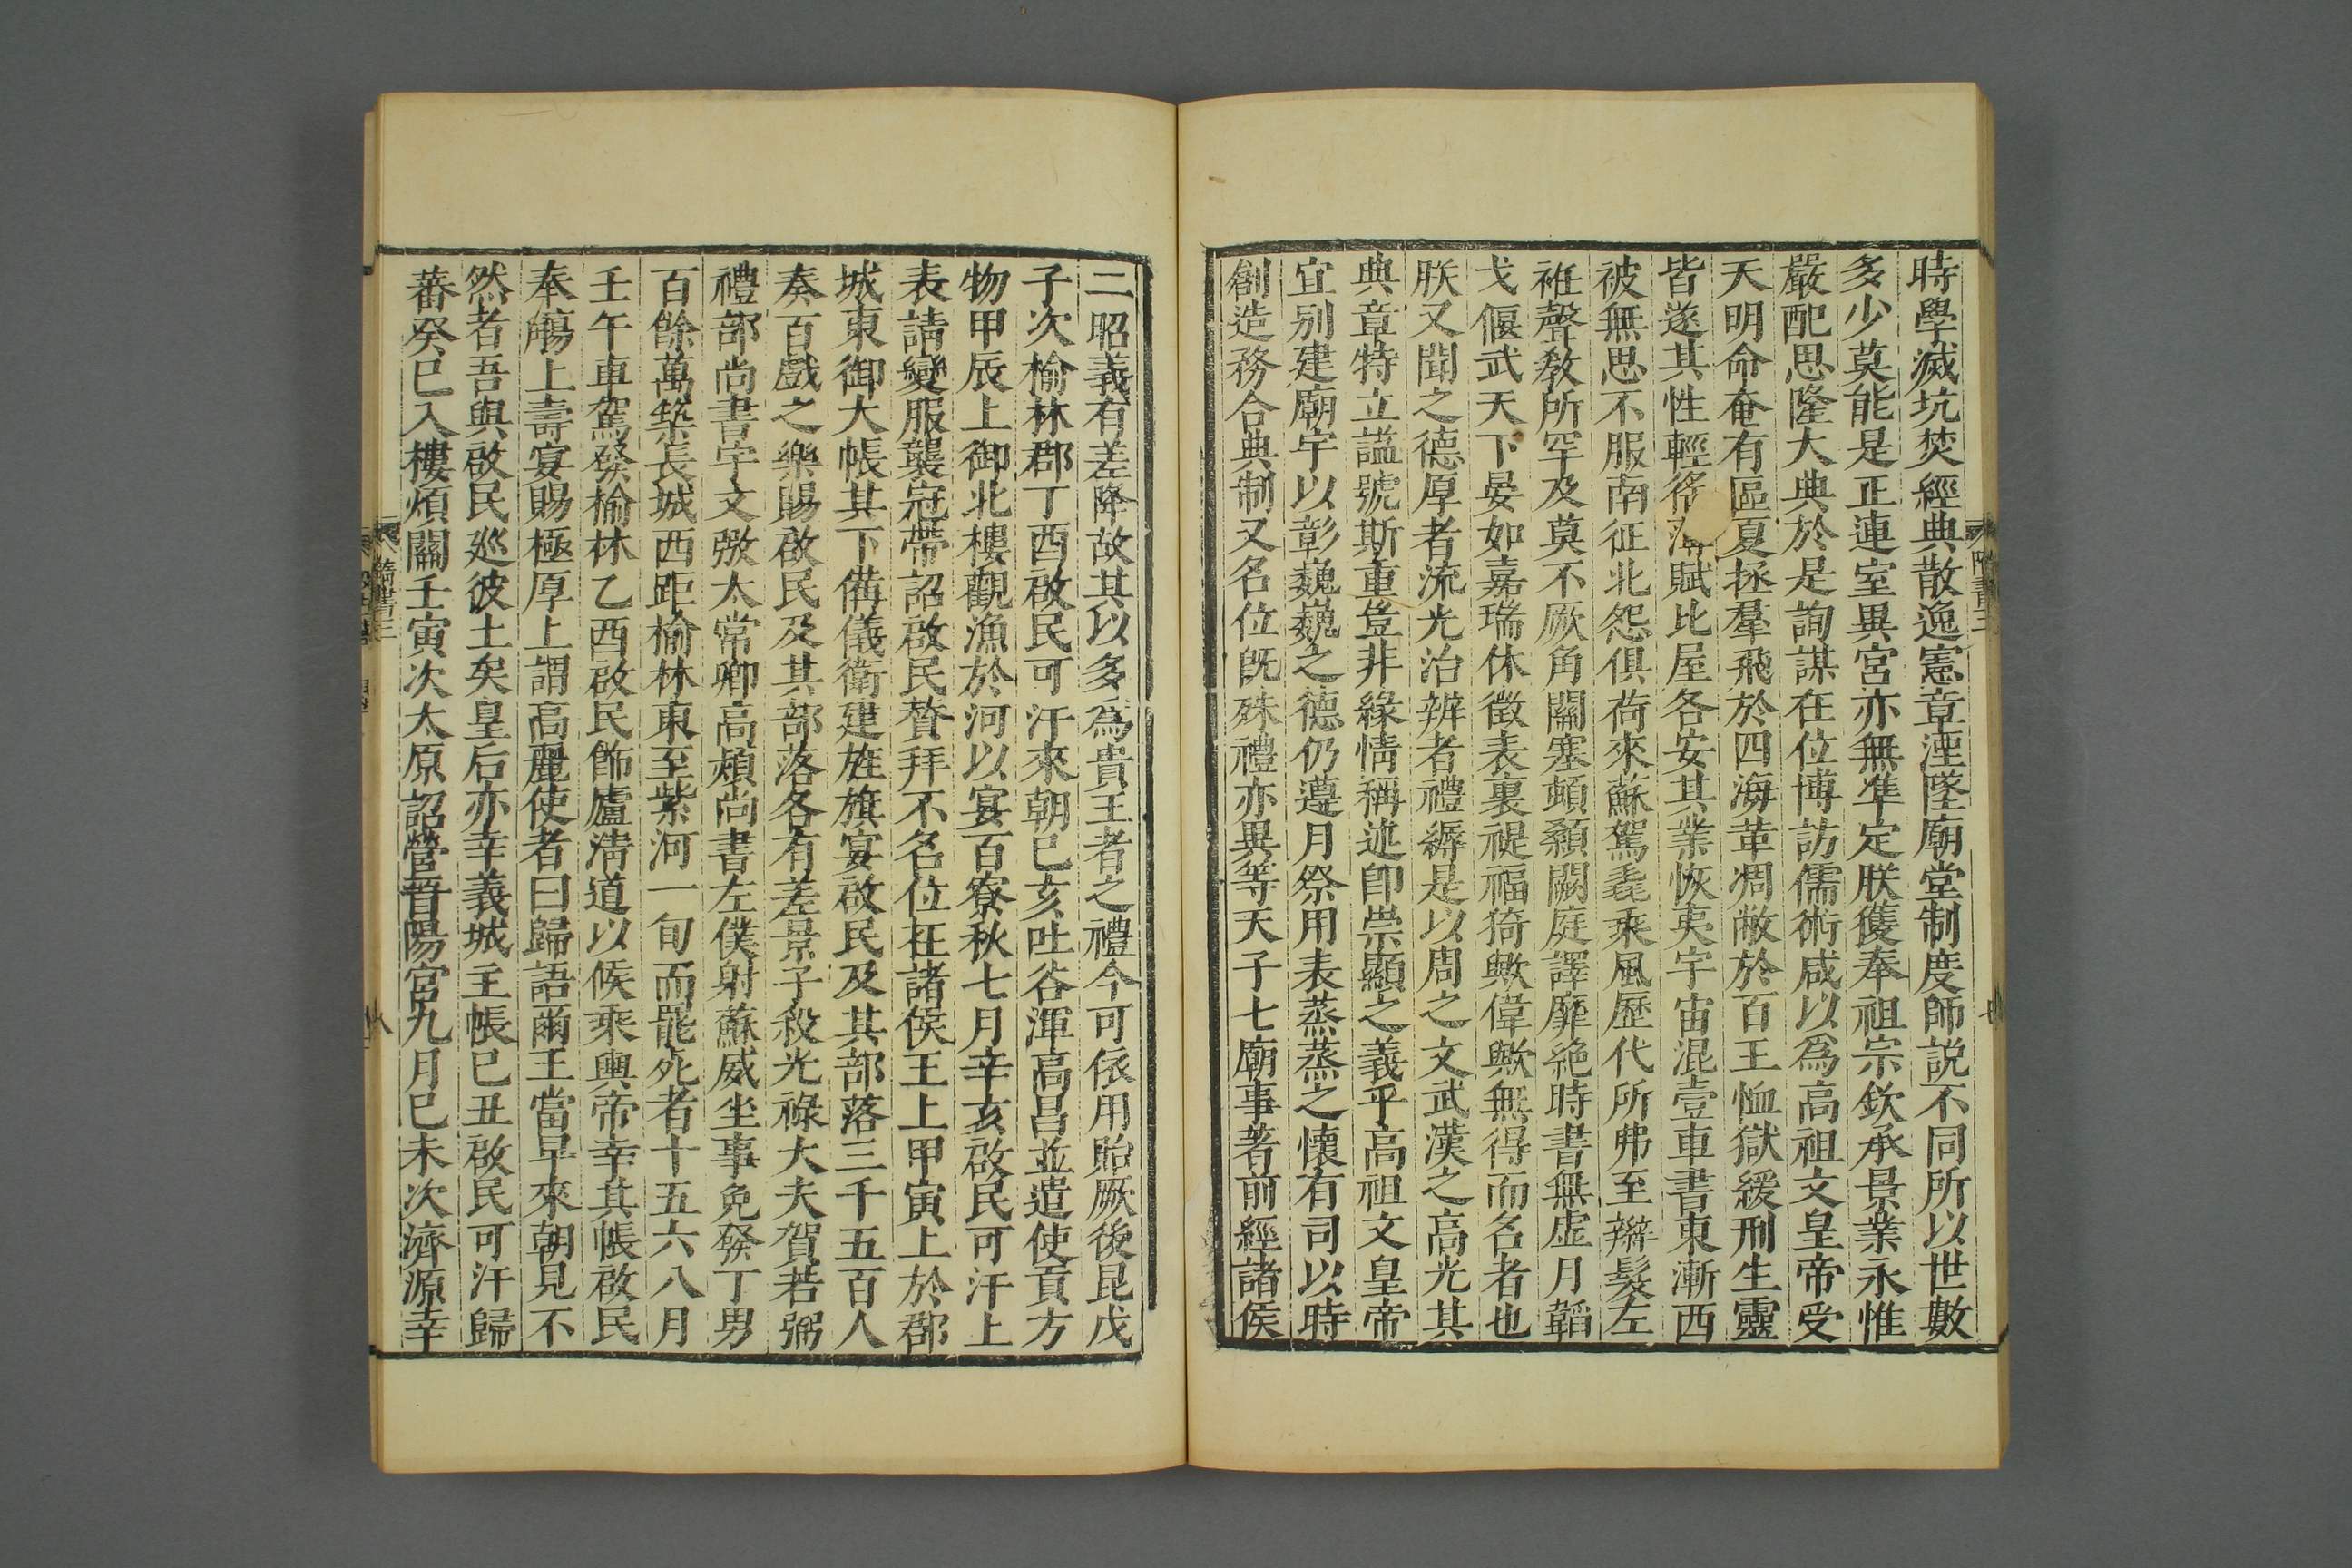 時學滅坑焚經典散逸憲章湮墜廟堂制度師説不同所以世數
多少莫能是正連室異宮亦無準定朕獲奉祖宗欽承景業永惟
嚴配思隆大典於是詢謀在位博訪儒術咸以爲高祖文皇帝受
天明命奄有區夏拯羣飛於四海革凋敝於百王恤獄緩刑生靈
皆遂其性輕徭薄賦比屋各安其業恢夷宇宙混壹車書東漸西
被無思不服南征北怨俱荷來蘇駕毳乘風歷代所弗至辮髮左
袵聲敎所罕及莫不厥角關塞頓顙闕庭譯靡絶時書無虚月韜
戈偃武天下晏如嘉瑞休徵表裏禔福猗歟偉歟無得而名者也
朕又聞之德厚者流光治辨者禮縟是以周之文武漢之高光其
典章特立謚號斯重豈非緣情稱述即崇顯之義乎高祖文皇帝
宜別建廟宇以彰巍巍之德仍遵月祭用表蒸蒸之懷有司以時
創造務合典制又名位既殊禮亦異等天子七廟事著前經諸侯
二昭義有差降故其以多爲貴王者之禮今可依用貽厥後昆戊
子次榆林郡丁酉啟民可汗來朝己亥吐谷渾高昌並遣使貢方
物甲辰上御北樓觀漁於河以宴百寮秋七月辛亥啟民可汗上
表請變服襲冠帶詔啟民贊拜不名位在諸侯王上甲寅上於郡
城東御大帳其下備儀衛建旌旗宴啟民及其部落三千五百人
奏百戲之樂賜啟民及其部落各有差景子殺光祿大夫賀若弼
禮部尚書宇文㢸太常卿高熲尚書左僕射蘇威坐事免發丁男
百餘萬築長城西距榆林東至紫河一旬而罷死者十五六八月
壬午車駕發榆林乙酉啟民飾廬清道以候乘輿帝幸其帳啟民
奉觴上壽宴賜極厚上謂高麗使者曰歸語爾王當早來朝見不
然者吾與啟民巡彼土矣皇后亦幸義城主帳己丑啟民可汗歸
蕃癸巳入樓煩關壬寅次太原詔營晋陽宮九月己未次濟源幸